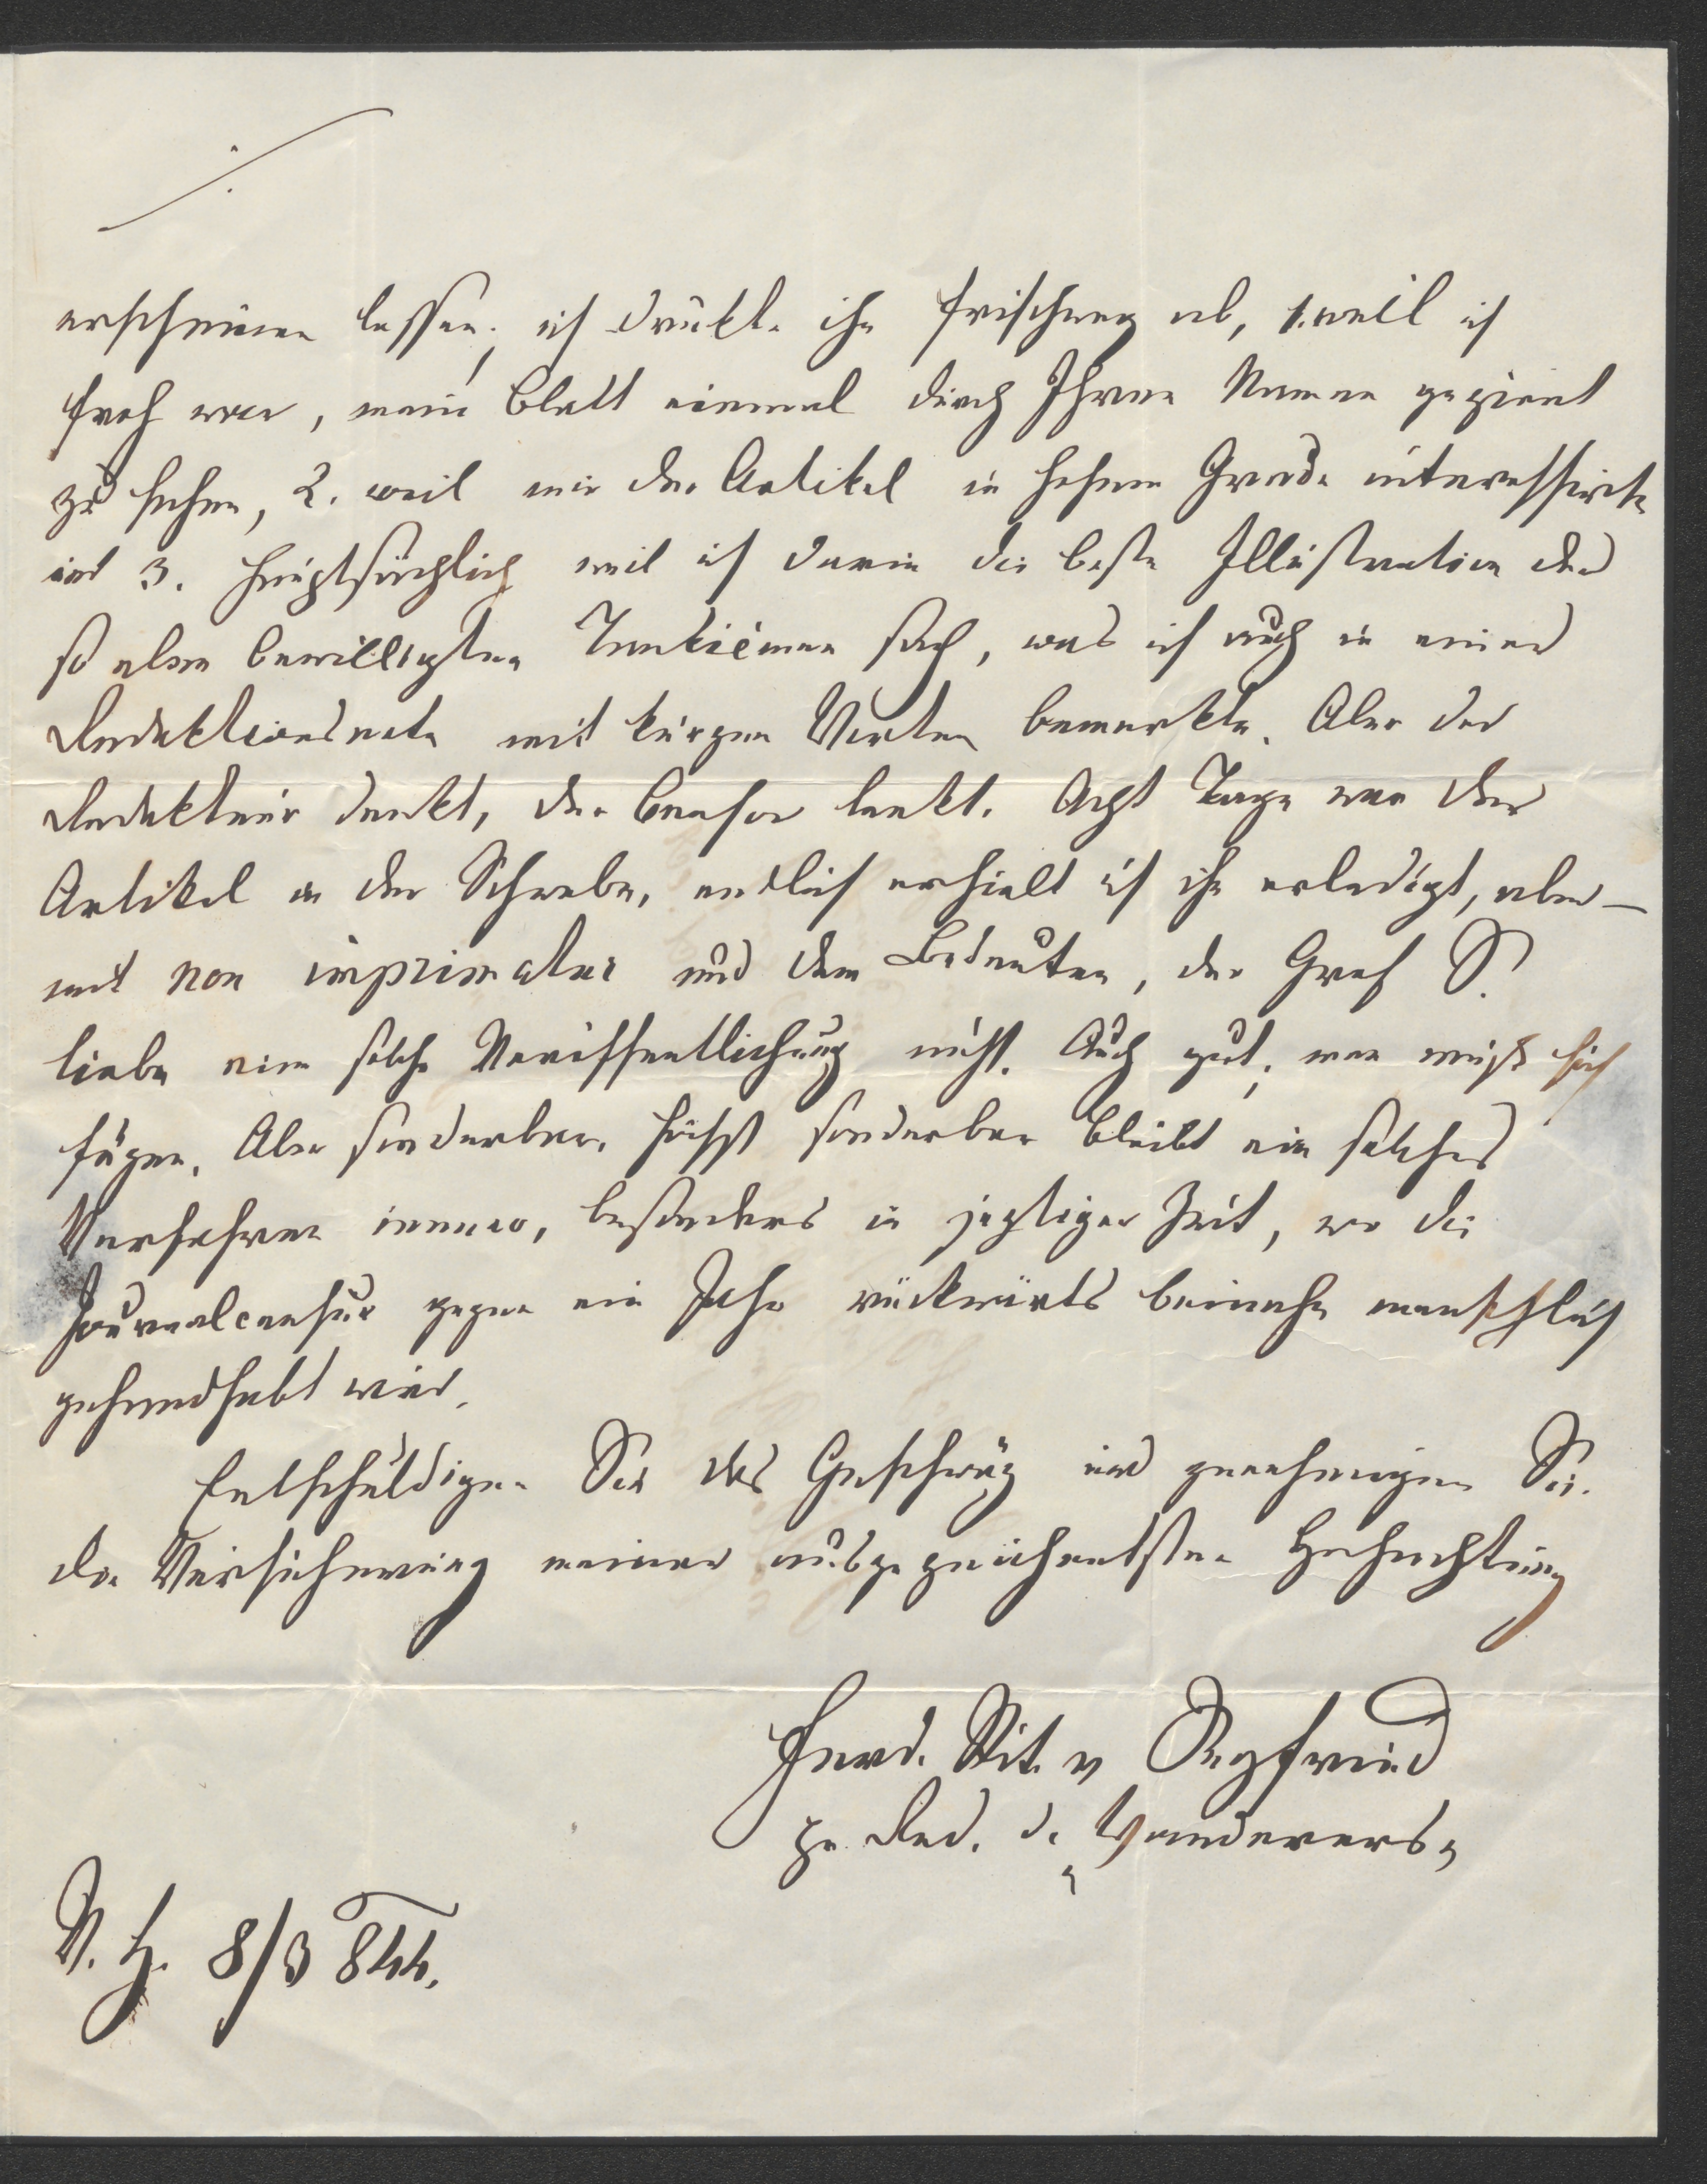 ./.
erscheinen lassen; ich druckte ihn frischweg ab, 1. weil ich
froh war, mein Blatt einmal durch Ihren Namen geziert
zu sehen, 2. weil mir der Artikel in hohem Grade interessirte
und 3. hauptsächlich weil ich darin die beste Illustration der
so eben bewilligten Tantièmen sah, was ich auch in einer
Redaktionsnote mit kurzen Worten bemerkte. Aber der
Redakteur denkt, der Censor lenkt. Acht Tage war der
Artikel in der Schwebe, endlich erhielt ich ihn erledigt, aber —
mit non imprimatur und dem Bedeuten, der Graf S.
liebe eine solche Veröffentlichung nicht. Auch gut; man muß sich
fügen. Aber sonderbar, höchst sonderbar bleibt ein solches
Verfahren immer, besonders in jetziger Zeit, wo die
Journalcensur gegen ein Jahr rückwärts beinahe menschlich
gehandhabt wird.
Entschuldigen Sie das Geschwätz und genehmigen Sie
die Versicherung meiner ausgezeichnetsten Hochachtung
Ferd. Rit. v Seyfried
Red. d. Wanderers
V. H. 8/3 844.